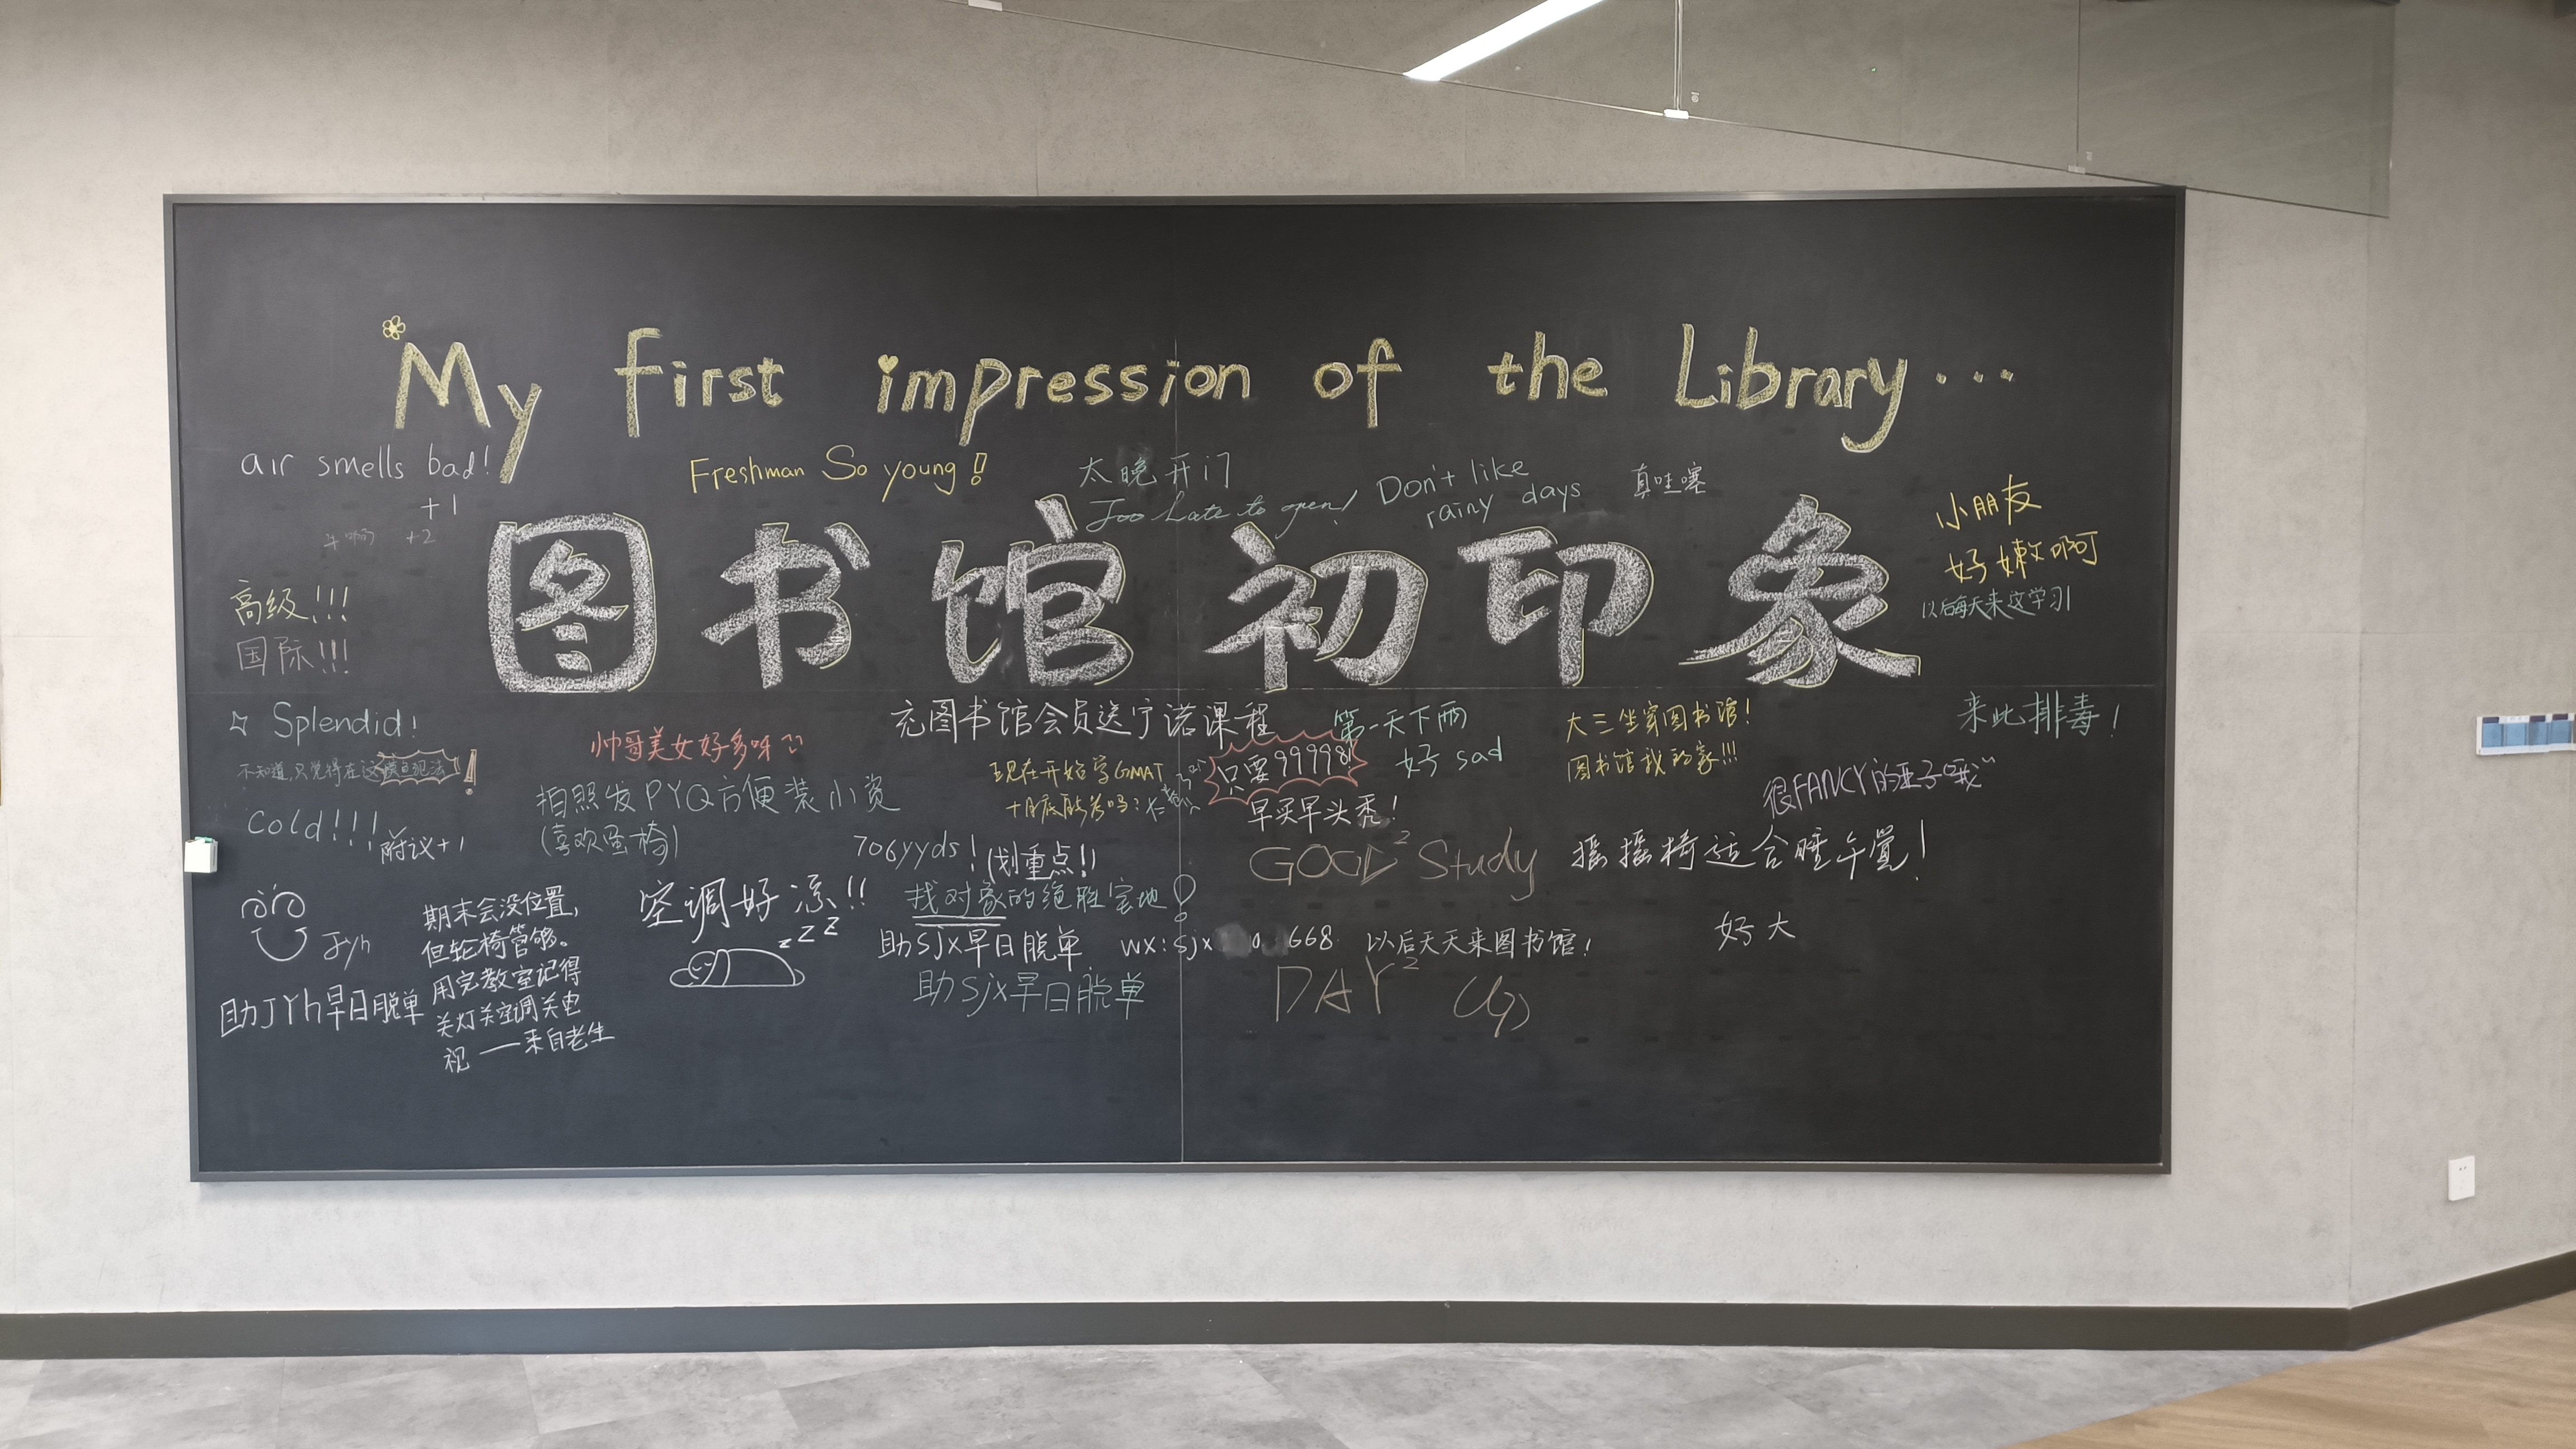 My first impression of the Library...
air smells bad!
+1
+2
Freshman So young!
太晚开门
Too Late to open!
Don't like
rainy days
真哇塞
图书馆初印象
小朋友
好嫩啊
以后每天来这学习
高级!!!
国际!!!
Splendid!
不知道,只觉得在这
Cold!!!
附议+1
帅哥美女好多呀
拍照发PYQ方便装小资
(喜欢蛋椅)
充图书馆会员送宁诺课程
只要99998!
早买早头秃!
现在开始学GMAT
十月底能考吗?
第一天下雨
好sad
大三坐穿图书馆!
图书馆我的家!!!
来此排毒!
很FANCY的亚子哦~
摇摇椅适合睡午觉!
706yyds!(划重点!)
找对象的绝胜宝地!
GOOD² Study
DAY² Up
空调好凉!!
zZZ
助sjx早日脱单 wx:sjx
668
助sjx早日脱单
以后天天来图书馆!
好大
Jyh
助JYh早日脱单
期末会没位置,
但轮椅管够。
用完教室记得
关灯关空调关电
视 ——来自老生